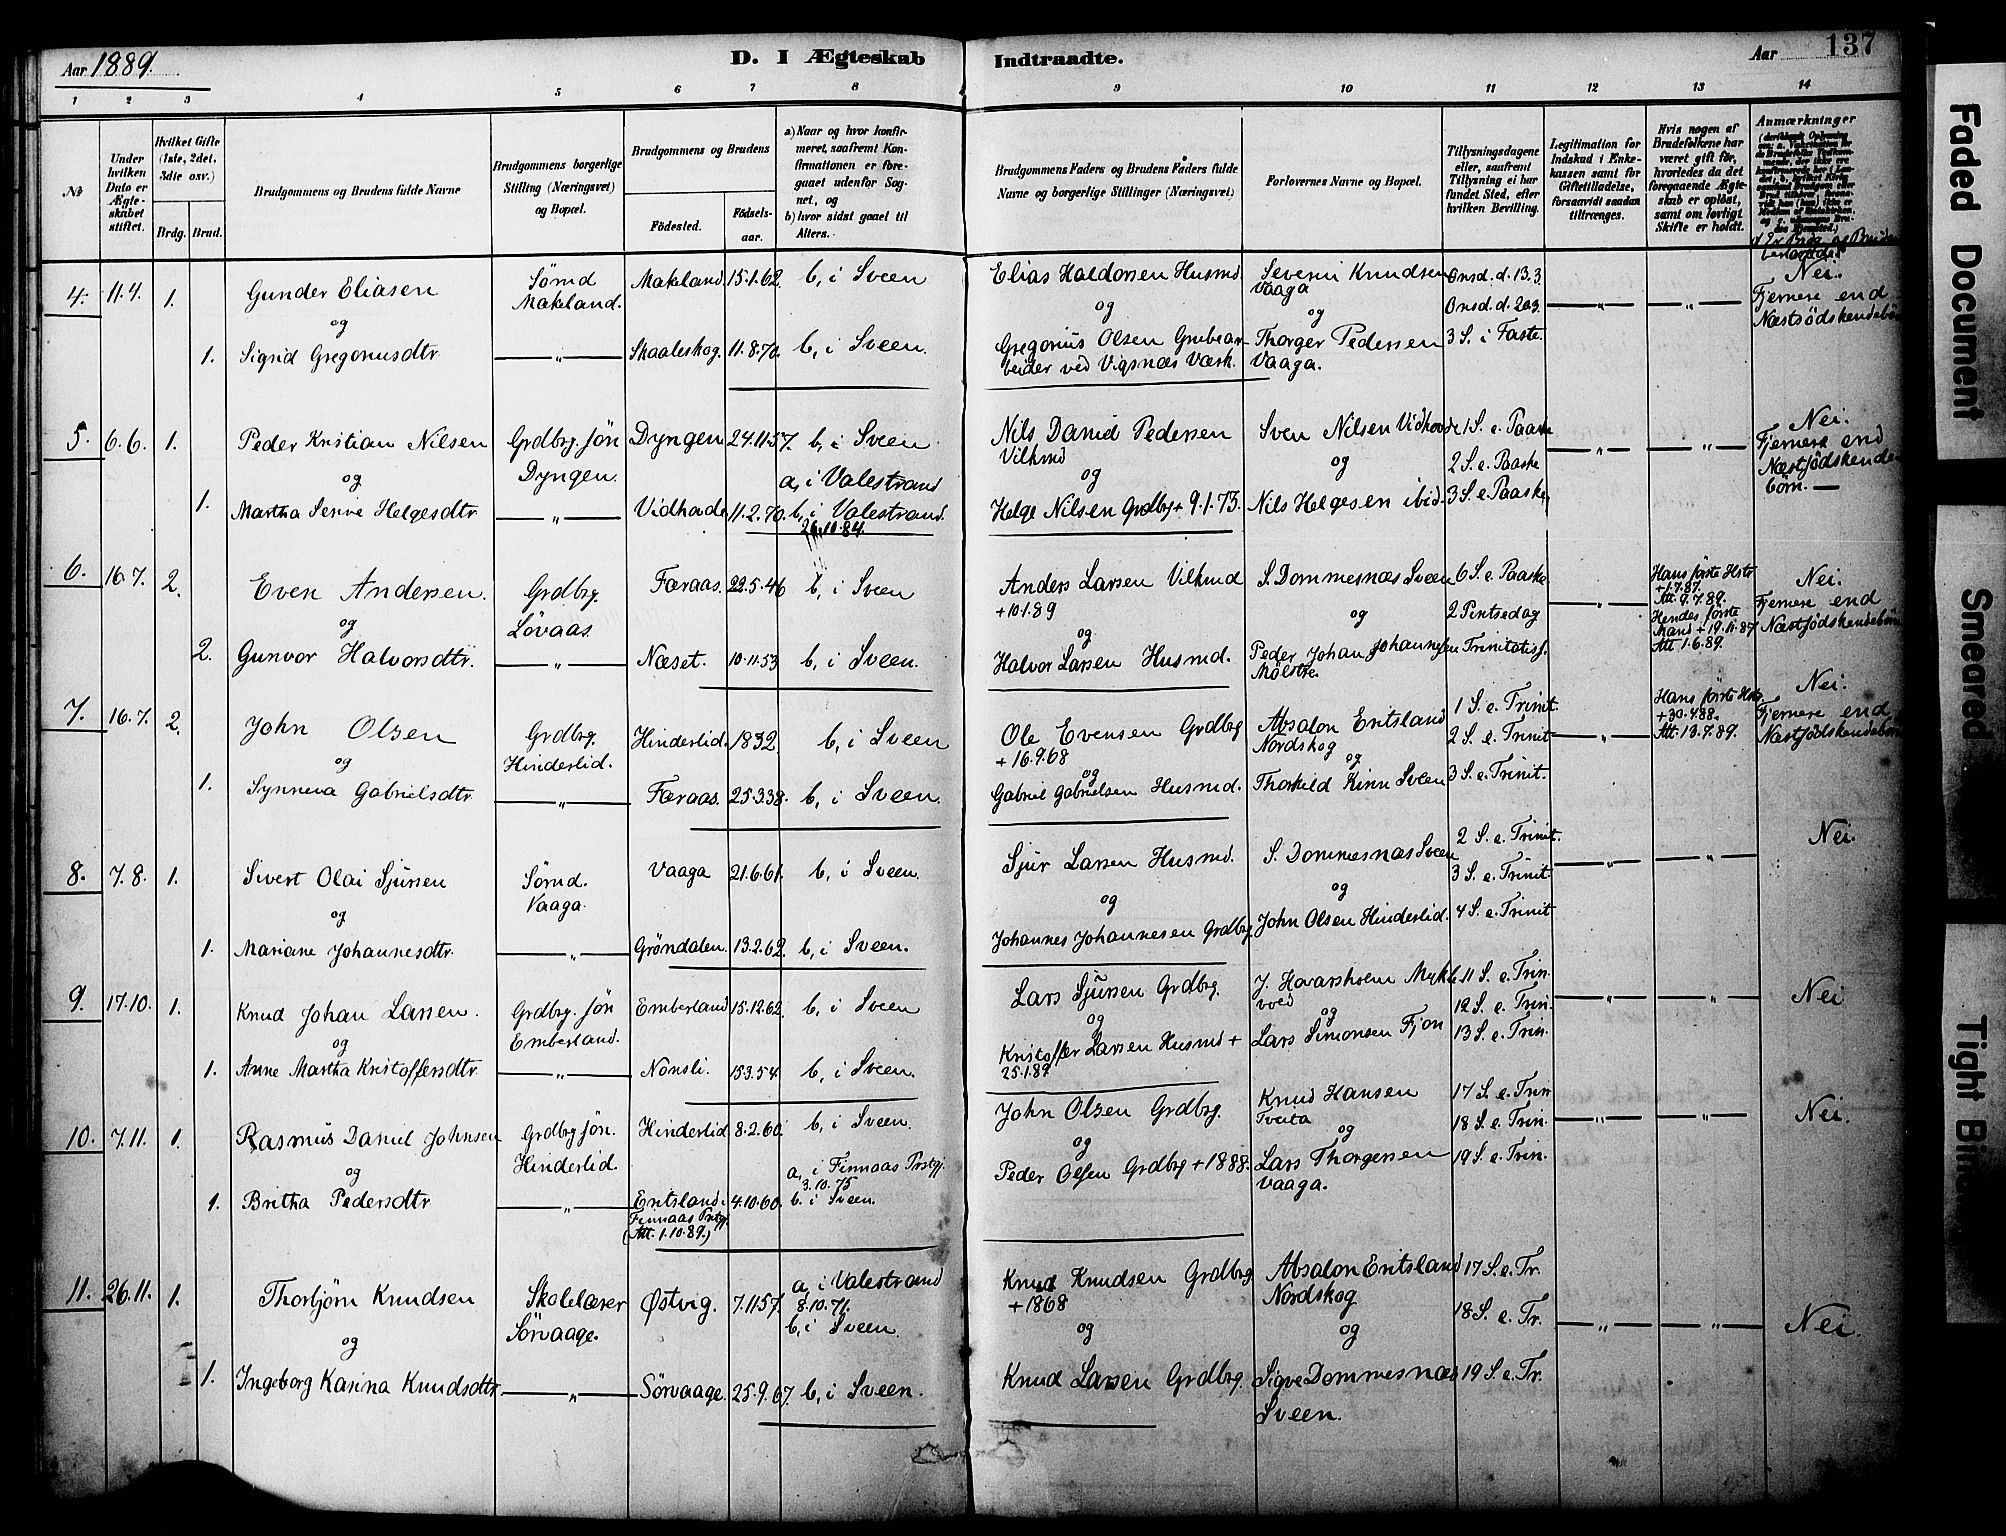 Aar 1889.
D. I Ægteskab
Indtraadte.
Aar
137
1 2 3 4 5 6 7 8 9 10 11 12 13 14
No
Under hvilken Dato er Ægteskabet stiftet.
Hvilket Gifte (1ste, 2det, 3die osv.)
Brdg. Brud.
Brudgommens og Brudens fulde Navne
Brudgommens borgerlige Stilling (Næringsvei) og Bopæl.
Brudgommens og Brudens
Fødested.
Fødsels-aar.
a) Naar og hvor konfirmeret, saafremt Konfirmationen er foregaaet udenfor Sognet, og
b) hvor sidst gaaet til Alters.
Brudgommens Faders og Brudens Faders fulde Navne og borgerlige Stillinger (Næringsvei)
Forlovernes Navne og Bopæl.
Tillysningsdagene eller, saafremt Tillysning ei har fundet Sted, efter hvilken Bevilling.
Legitimation for Indskud i Enkekassen samt for Giftetilladelse, forsaavidt saadan tiltrænges.
Hvis nogen af Brudefolkene har været gift før, hvorledes da det foregaaende Ægteskab er opløst, samt om lovligt Skifte er holdt.
Anmærkninger
4. 11.4. 1. Gunder Eliasen Sømd Makeland. Makeland. 15.1.62. b, i Sveen Elias Haldorsen Husmd. Severin Knudsen Vaaga Onsd. d. 13.3. — „ — — „ — Nei.
og og og Onsd. d. 20.3. Fjernere end
1. Sigrid Gregoriusdtr — „ — Skaaleskog. 11.8.70. b, i Sveen. Gregorius Olsen Grubearbeider ved Vigsnæs Værk. Thorger Pedersen Vaaga. 3 S. i Faste. Næstsødskendebørn
5. 6.6. 1. Peder Kristian Nilsen Grdbrg. søn Dyngen. Dyngen 24.11.57. b, i Sveen Nils Daniel Pedersen Vilkmd Sven Nilsen Vidhovde 1 S. e. Paaske — „ — — „ — Nei.
og a, i Valestrand og og 2 S. e. Paaske Fjernere end
1. Martha Serine Helgesdtr — „ — Vidhovde 11.2.70. b, i Valestrand. 26.10.84. Helge Nilsen Grdbrg + 9.1.73. Nils Helgesen ibid. 3 S. e. Paaske Næstsødskendebørn. —
6. 16.7. 2. Even Andersen. Grdbrg. Løvaas. Færaas. 22.5.46 b, i Sveen Anders Larsen Vilkmd +10.1.89 S. Dommesnæs Sveen 6 S. e. Paaske — „ — Hans første Hstr. +1.7.87. Att. 9.7.89. Nei.
og og og 2 Pintsedag Hendes første Mand + 19.11.87 Att 1.6.89. Fjernere end
2. Gunvor Halvorsdtr. — „ — Næset. 10.11.53 b, i Sveen. Halvor Larsen Husmd. Peder Johan Johannesen Mölstre. Trinitatisf. Næstsødskendebørn
7. 16.7. 2. John Olsen Grdbrg. Hinderlid. Hinderlid. 1832. b, i Sveen Ole Evensen Grdbrg +16.9.68 Absalon Eritsland Nordskog 1 S. e. Trinit. — „ — Hans første Hstr. +30.4.88. Att. 13.7.89. Nei.
og og og 2 S. e. Trinit. Fjernere end
1. Synneva Gabrielsdtr. — „ — Færaas. 25.3.38. b, i Sveen. Gabriel Gabrielsen Husmd. Thorkild Kinn Sveen 3 S. e. Trinit. Næstsødskendebørn
8. 7.8. 1. Sivert Olai Sjursen Sømd. Vaaga. Vaaga 21.6.61. b, i Sveen. Sjur Larsen Husmd. S. Dommesnæs Sveen 2 S. e. Trinit. — „ — — „ — Nei.
og og og 3 S. e. Trinit
1. Mariane Johannesdtr. — „ — Gröndalen. 13.2.62. b, i Sveen. Johannes Johannesen Grdbrg. John Olsen Hinderlid. 4 S. e. Trinit
9. 17.10. 1. Knud Johan Larsen. Grdbrg. søn Emberland. Emberland 15.12.62. b, i Sveen Lars Sjursen Grdbrg. J. Havarsholm Myklevoed 11 S. e. Trin. — „ — — „ — Nei
og og og 12 S. e. Trin.
1. Anne Martha Kristoffersdtr — „ — Nonsli. 15.3.54. b, i Sveen. Kristoffer Larsen Husmd + 25.1.89. Lars Simonsen Fjon 13 S. e. Trin.
10. 7.11. 1. Rasmus Daniel Johnsen Grdbrg søn. Hinderlid. Hinderlid 8.2.60. b, i Sveen. John Olsen Grdbrg. Knud Hansen Tveita 17 S. e. Trin — „ — — „ — Nei.
og a, i Finnaas Prstgj. 3.10.75 og og 18 S. e. Trin.
1. Britha Pedersdtr — „ — Eritsland. Finnaas Prstgj. (Att. 1.10.89.) 4.10.60. b. i Sveen. Peder Olsen Grdbrg + 1888. Lars Thorgersen Vaaga. 19 S. e. Trin.
11. 26.11. 1. Thorbjörn Knudsen Skolelærer Sörvaage. Østvig. 7.11.57. a, i Valestrand 8.10.71. b, i Sveen. Knud Knudsen Grdbrg +1868 Absalon Eritsland Nordskog 17 S. e. Tr. — „ — — „ — Nei.
og og og 18 S. e. Tr.
1. Ingeborg Karina Knudsdtr. — „ — Sörvaage. 25.9.67. b, i Sveen. Knud Larsen Grdbrg. Sigve Dommesnæs Sveen. 19 S. e. Tr.
Faded Document
Smeared